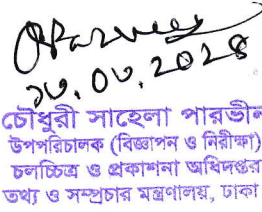 ১৩.০৩.২০২৪
চৌধুরী সাহেলা পারভীন
উপপরিচালক (বিজ্ঞাপন ও নিরীক্ষা)
চলচ্চিত্র ও প্রকাশনা অধিদপ্তর
তথ্য ও সম্প্রচার মন্ত্রণালয়, ঢাকা